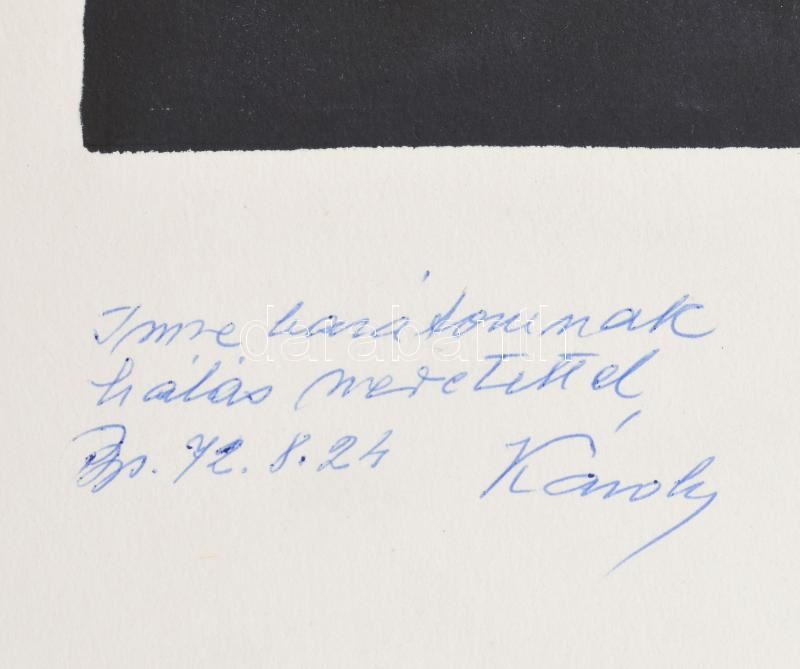 Imre barátomnak
hálás szeretettel
Bp. 72. 8. 24 Károly
darabanth